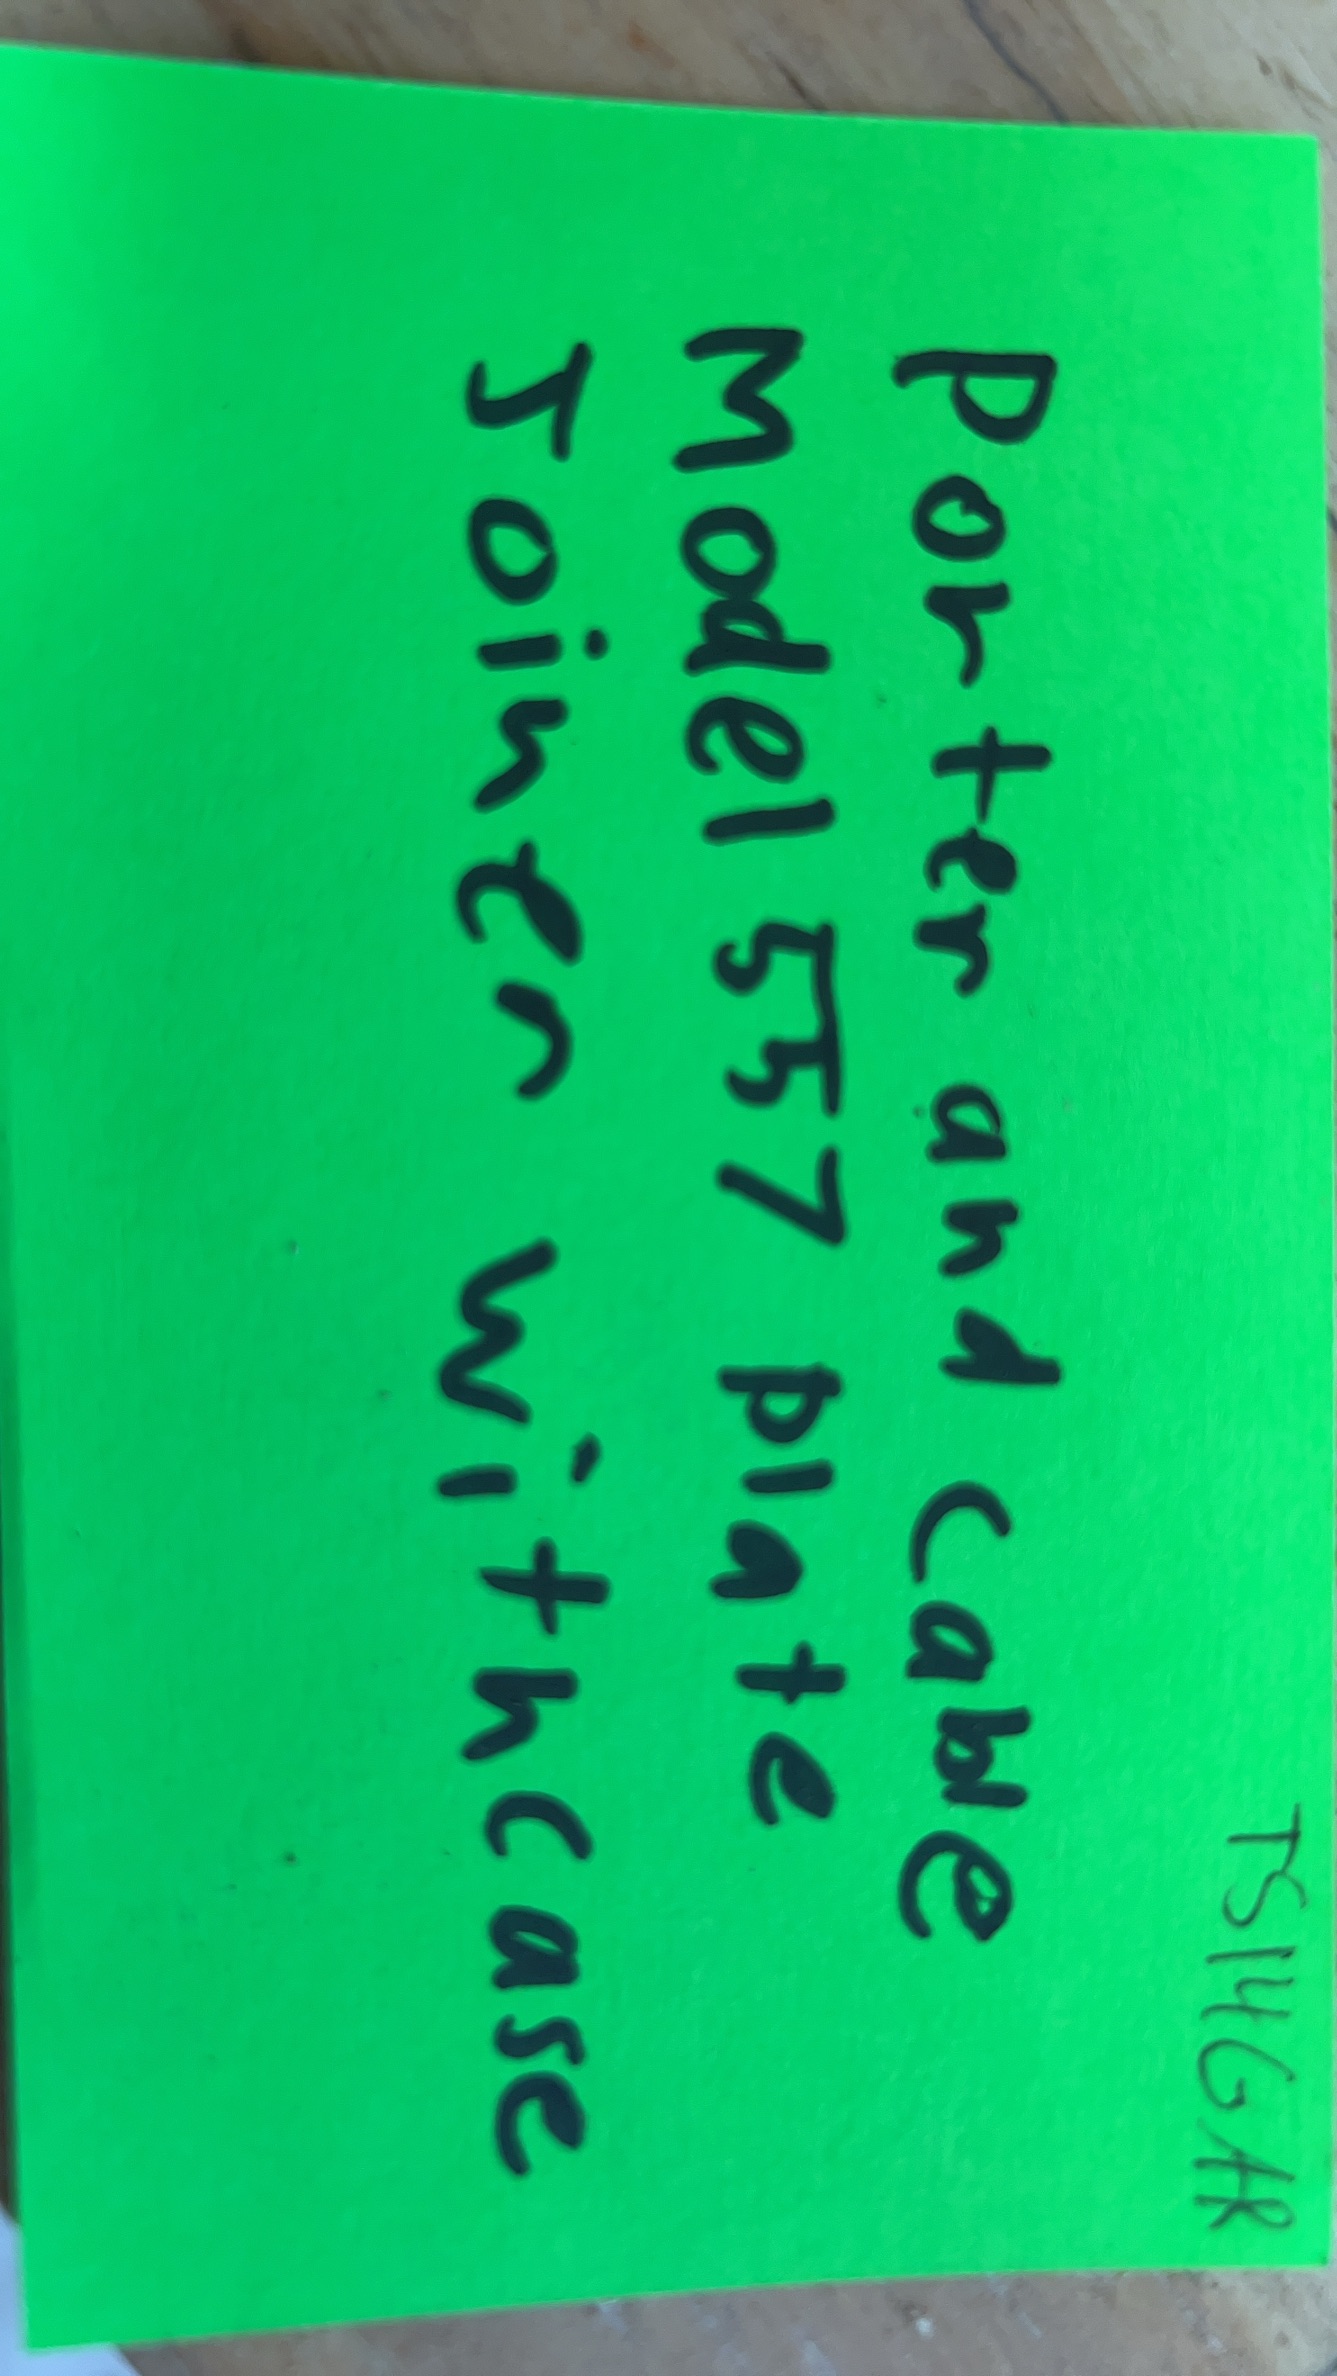 TS14GAR
Porter and cable
Model 557 plate
Joiner with case